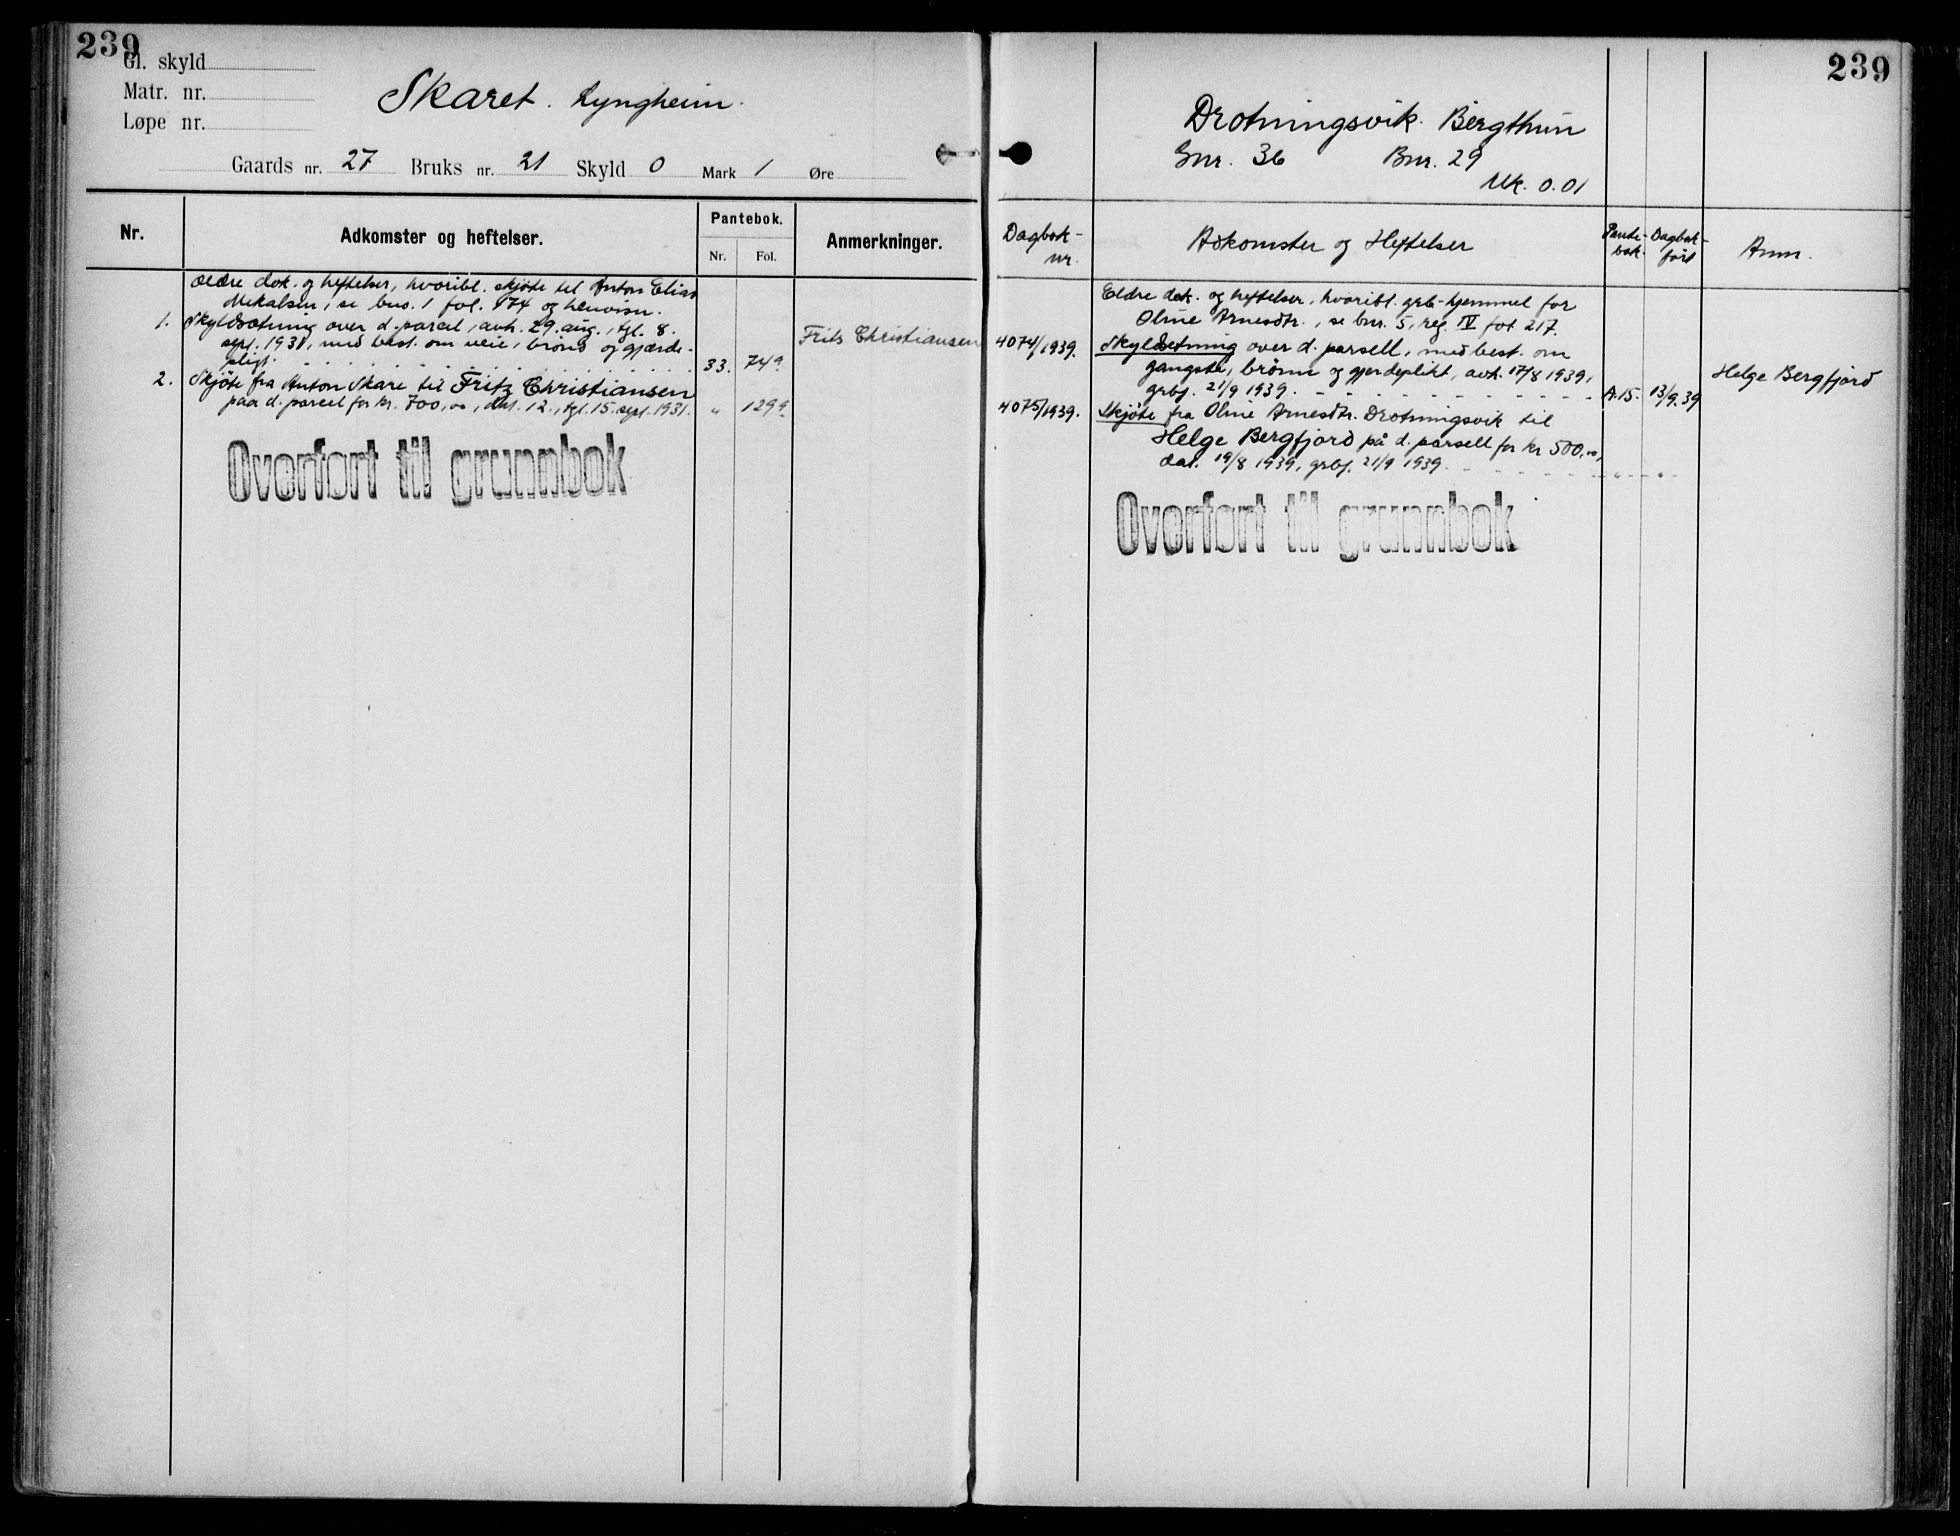 239
Gl. skyld
Matr. nr.
Løpe nr.
Skaret. Lyngheim.
Gaards nr. 27 Bruks nr. 21 Skyld 0 Mark 1 Øre
Nr. Adkomster og heftelser. Pantebok. Anmerkninger.
Nr. Fol.
Ældre dok. og heftelser, hvoribl. skjøte til Anton Elias
Mikalsen, se bno. 1 fol. 174 og henvisn.
1. Skyldsetning over d. parcel, avh. 29. aug., tgl. 8.
sept. 1931, med best. om veie, brønd og gjærde-
pligt 33. 749. Frits Christiansen
2. Skjøte fra Anton Skare til Fritz Christiansen
paa d. parcel for kr. 700,00, dat. 12., tgl. 15. sept. 1931. " 1299.
Overført til grunnbok
239
Drotningsvik. Bergthun
Gnr. 36 Bnr. 29
Mk. 0.01
Dagbok-
nr.
Adkomster og Heftelser
Pante-
bok.
Dagbok-
ført
Anm.
Eldre dok. og heftelser, hvoribl. grb-hjemmel for
Oline Arnesdtr., se bnr. 5, reg. IV fol 217.
4074/1939. Skyldsetning over d. parsell, med best. om
gangsti, brønn og gjerdeplikt, avh. 17/8 1939,
grbf. 21/9 1939. A.15. 13/9.39 Helge Bergfjord
4075/1939. Skjøte fra Oline Arnesdtr. Drotningsvik til
Helge Bergfjord på d. parsell for kr 500,00,
dat. 19/8 1939, grbf. 21/9 1939. " "
Overført til grunnbok